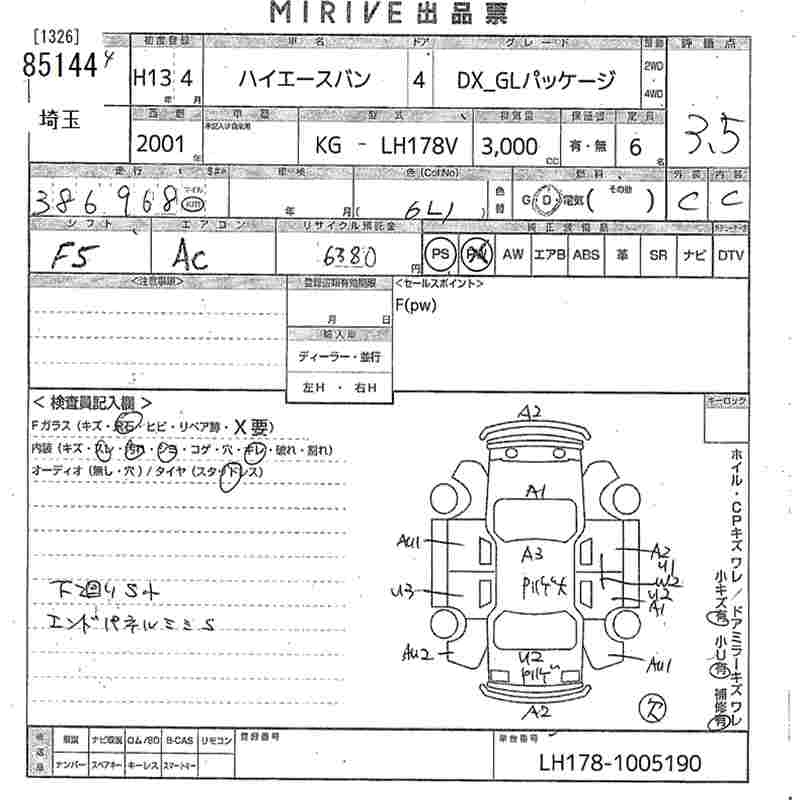 MIRIVE 出品票
[1326]
85144 4
埼玉
初度登録 車名 ドア グレード 駆動 評価点
H13 4 ハイエースバン 4 DX_GLパッケージ 2WD 4WD
年 月
3.5
西暦 車歴 型式 排気量 保証書 定員
2001 年 記載以外は自家用 KG - LH178V 3,000 CC 有・無 6 名
走行 車検 色(Col No) 燃料 外装 内装
386,968 マイル km 年 月 ( 6L1 ) 色替 G D 電気 ( その他 ) C C
シフト エアコン リサイクル預託金 純正装備品
F5 AC 6380 円 PS PW AW エアB ABS 革 SR ナビ DTV
<注意事項> 登録書類有効期限 <セールスポイント>
F(pw)
月 日
輸入車
ディーラー・並行
左H ・ 右H
< 検査員記入欄 > キーロック
Fガラス (キズ・飛石・ヒビ・リペア跡・X要)
内装 (キズ・スレ・汚れ・シミ・コゲ・穴・キレ・破れ・割れ)
オーディオ (無し・穴) / タイヤ (スタッドレス)
A2
A1
AU1 A3 A2
U1
W2
U3 U2
A1
下2回りSト
エンドパネルミミS
AU2 U2 AU1
A2
欠
ホイル・CPキズ ワレ / ドアミラーキズ ワレ
小キズ有 小U有 補修有
後送品 取説 ナビ取説 ロム/SD B-CAS リモコン 登録番号 車台番号
ナンバー スペアキー キーレス スマートキー
LH178-1005190